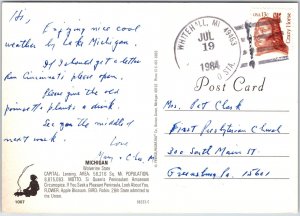 Hi,
Enjoying nice cool
weather by Lake Michigan.
If I should get a letter
from Cincinnati please open.
Please give the old
poinsett. plants a drink.
See you the middle of
next week.
Love
WHITEHALL, MI 49463
JUL
19
1984
STA.
USA 13c
Crazy Horse
Post Card
Ms. Pat Clark
First Presbyterian Church
300 South Main St
Greensburg Pa 15601
MICHIGAN
Wolverine State
CAPITAL: Lansing. AREA: 58,216 Sq. Mi. POPULATION:
8,815,083. MOTTO: Si Quaeris Peninsulam Amoenam
Circumspice. If You Seek a Pleasant Peninsula, Look About You.
FLOWER: Apple Blossom. BIRD: Robin. 26th State admitted to
the Union.
1007